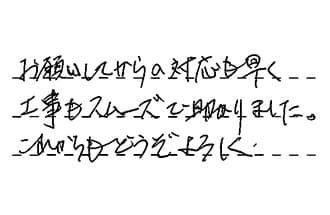 お願いしてからの対応も早く
工事もスムーズで助かりました。
これからもどうぞよろしく.